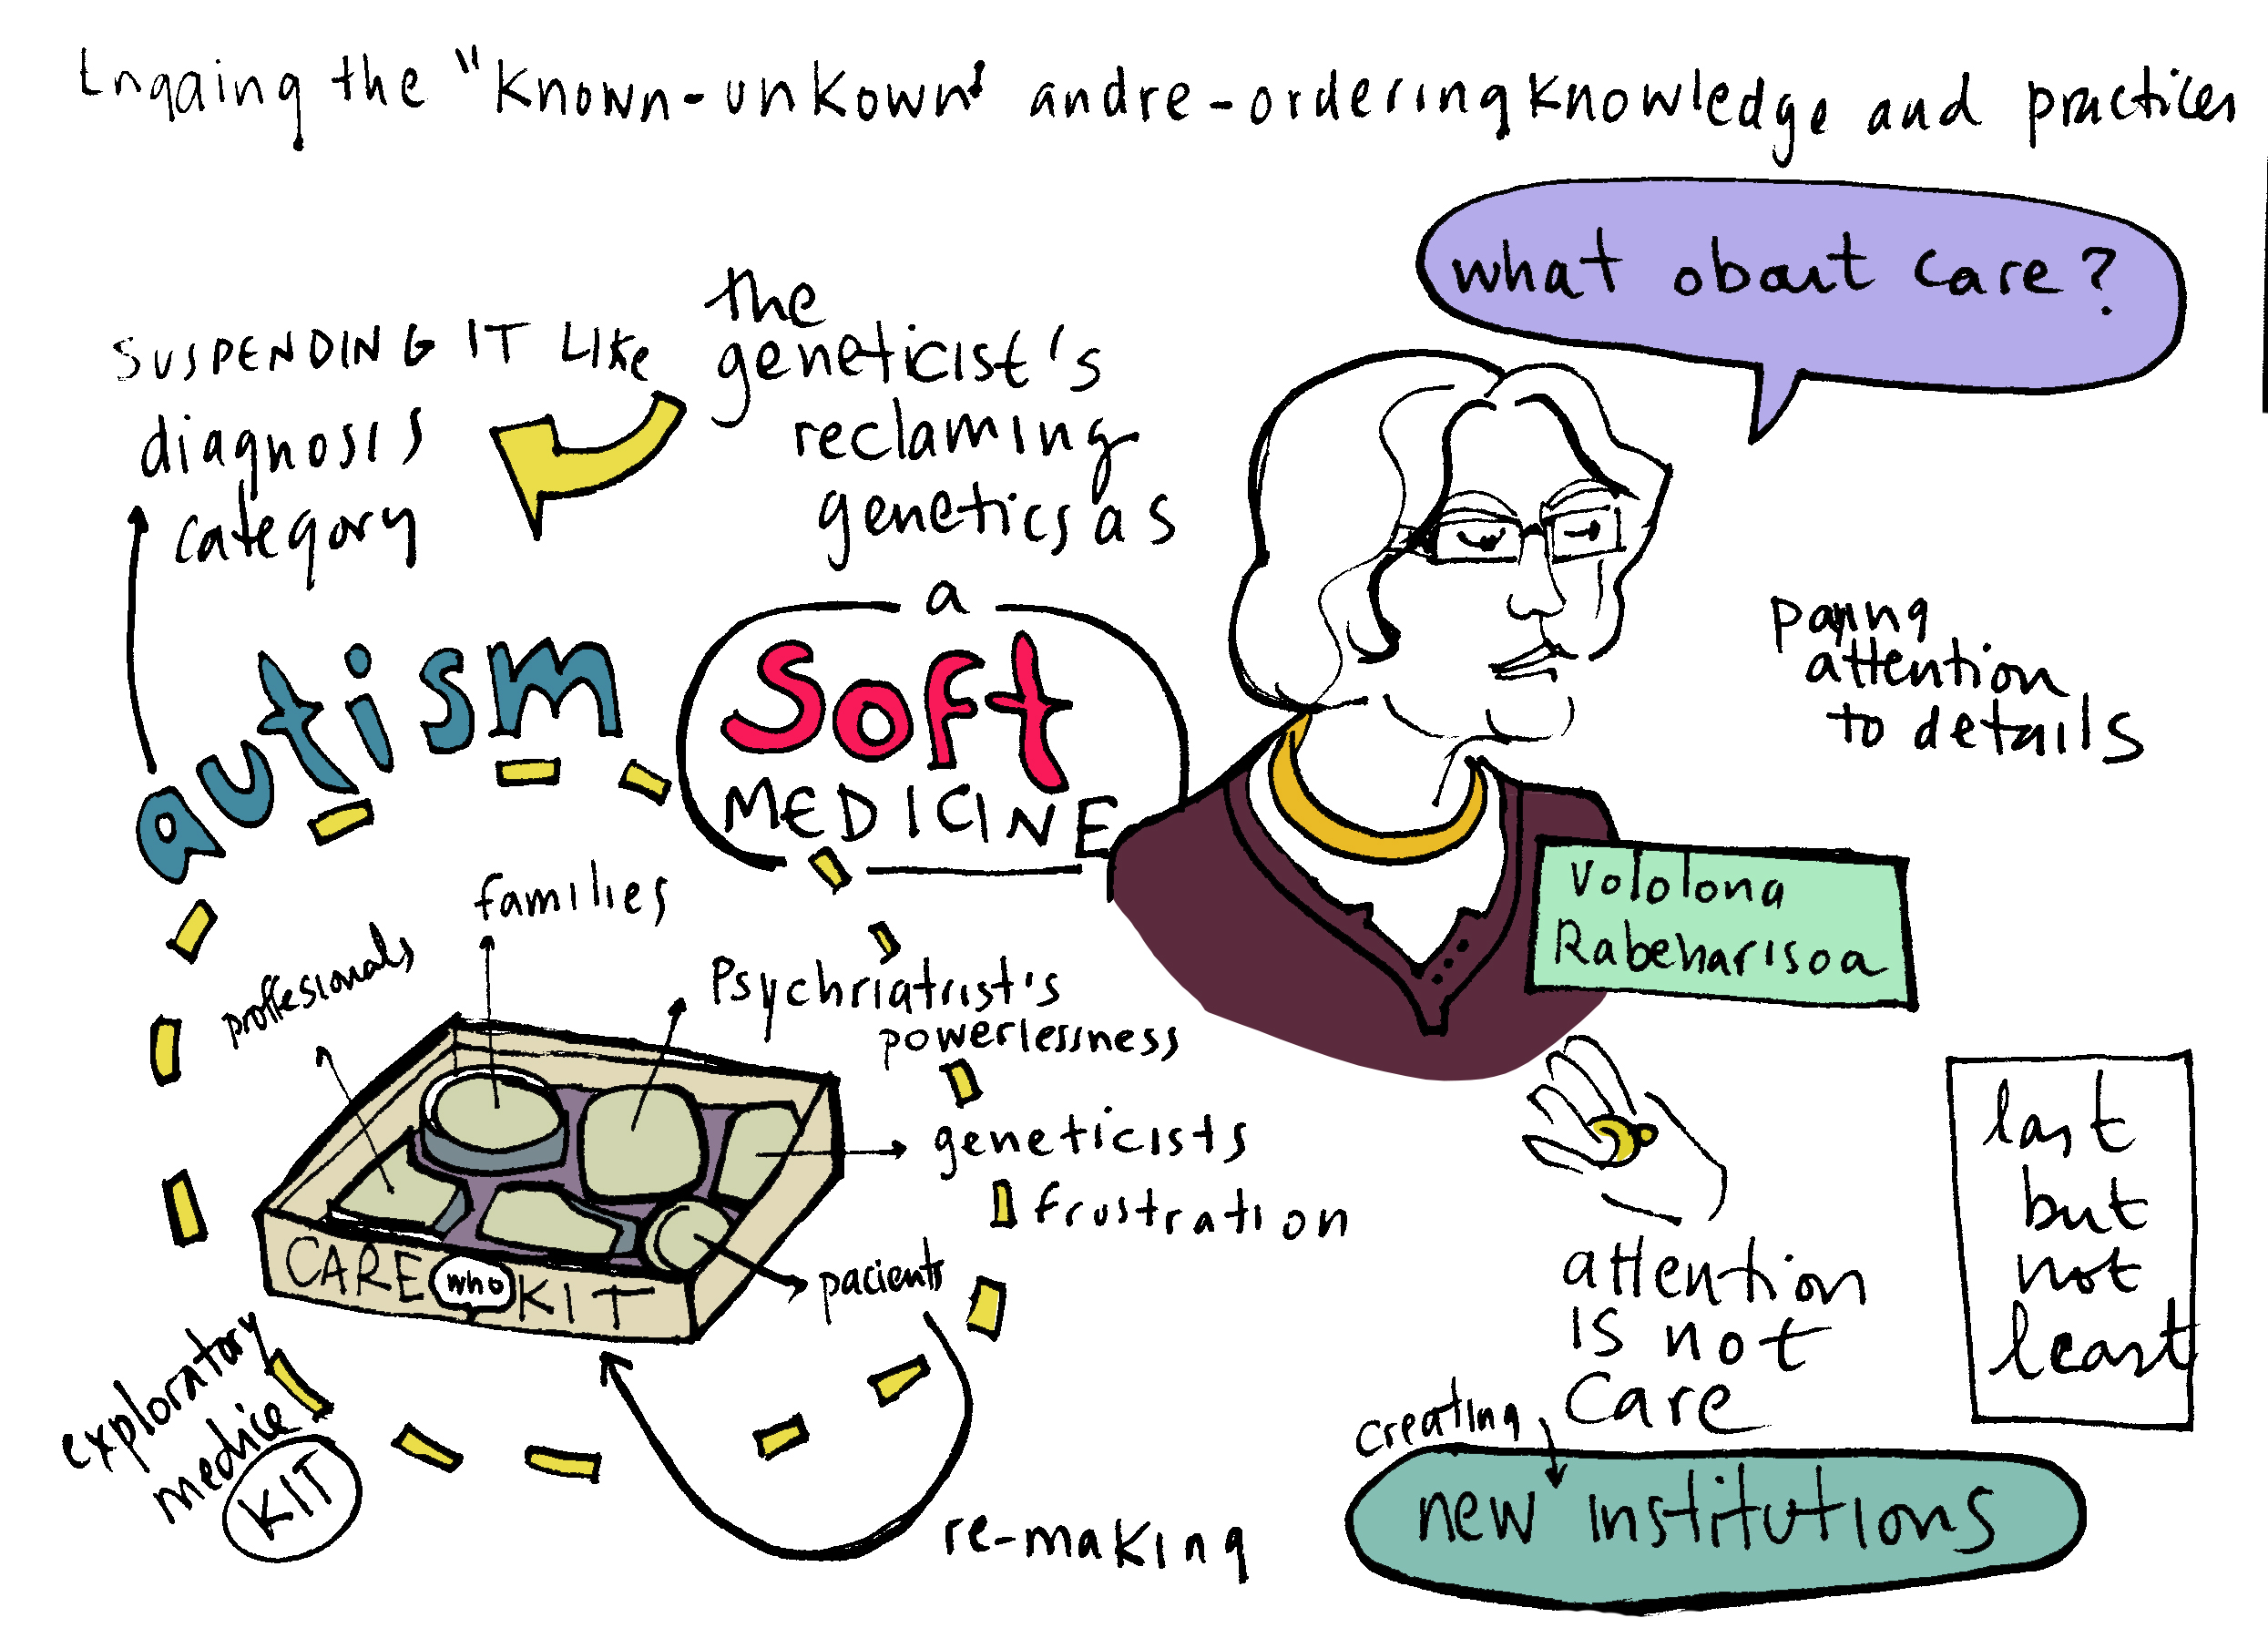 Engaing the "Known-unkown" and re-ordering knowledge and practices
what about care?
SUSPENDING IT LIKE
diagnosis
category
the
geneticist's
reclaming
genetics as
a
Soft
MEDICINE
autism
paying
attention
to details
Vololona
Rabeharisoa
families
proffesionals
Psychriatrist's
powerlessness
geneticists
frustration
pacients
CARE who KIT
exploratory
medicie
KIT
re-making
attention
is not
care
last
but
not
least
creating
new institutions